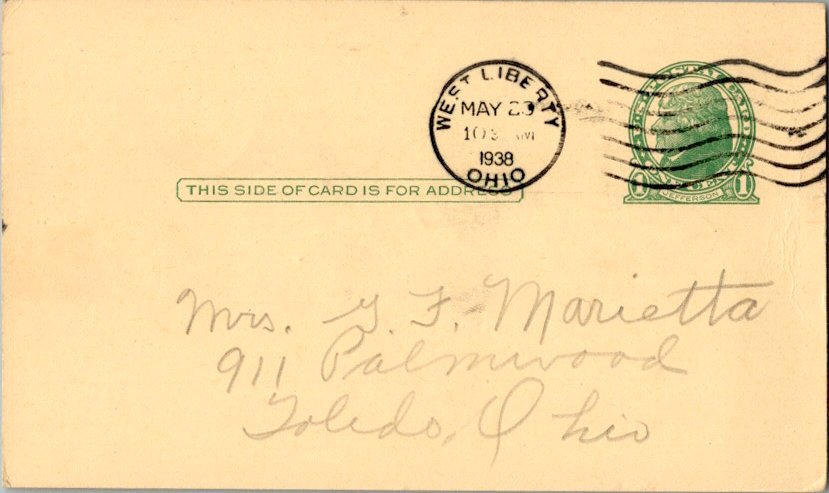 WEST LIBERTY
MAY 23
1938
OHIO
1 1
JEFFERSON
THIS SIDE OF CARD IS FOR ADDRESS
Mrs. G. F. Marietta
911 Palmwood
Toledo, Ohio